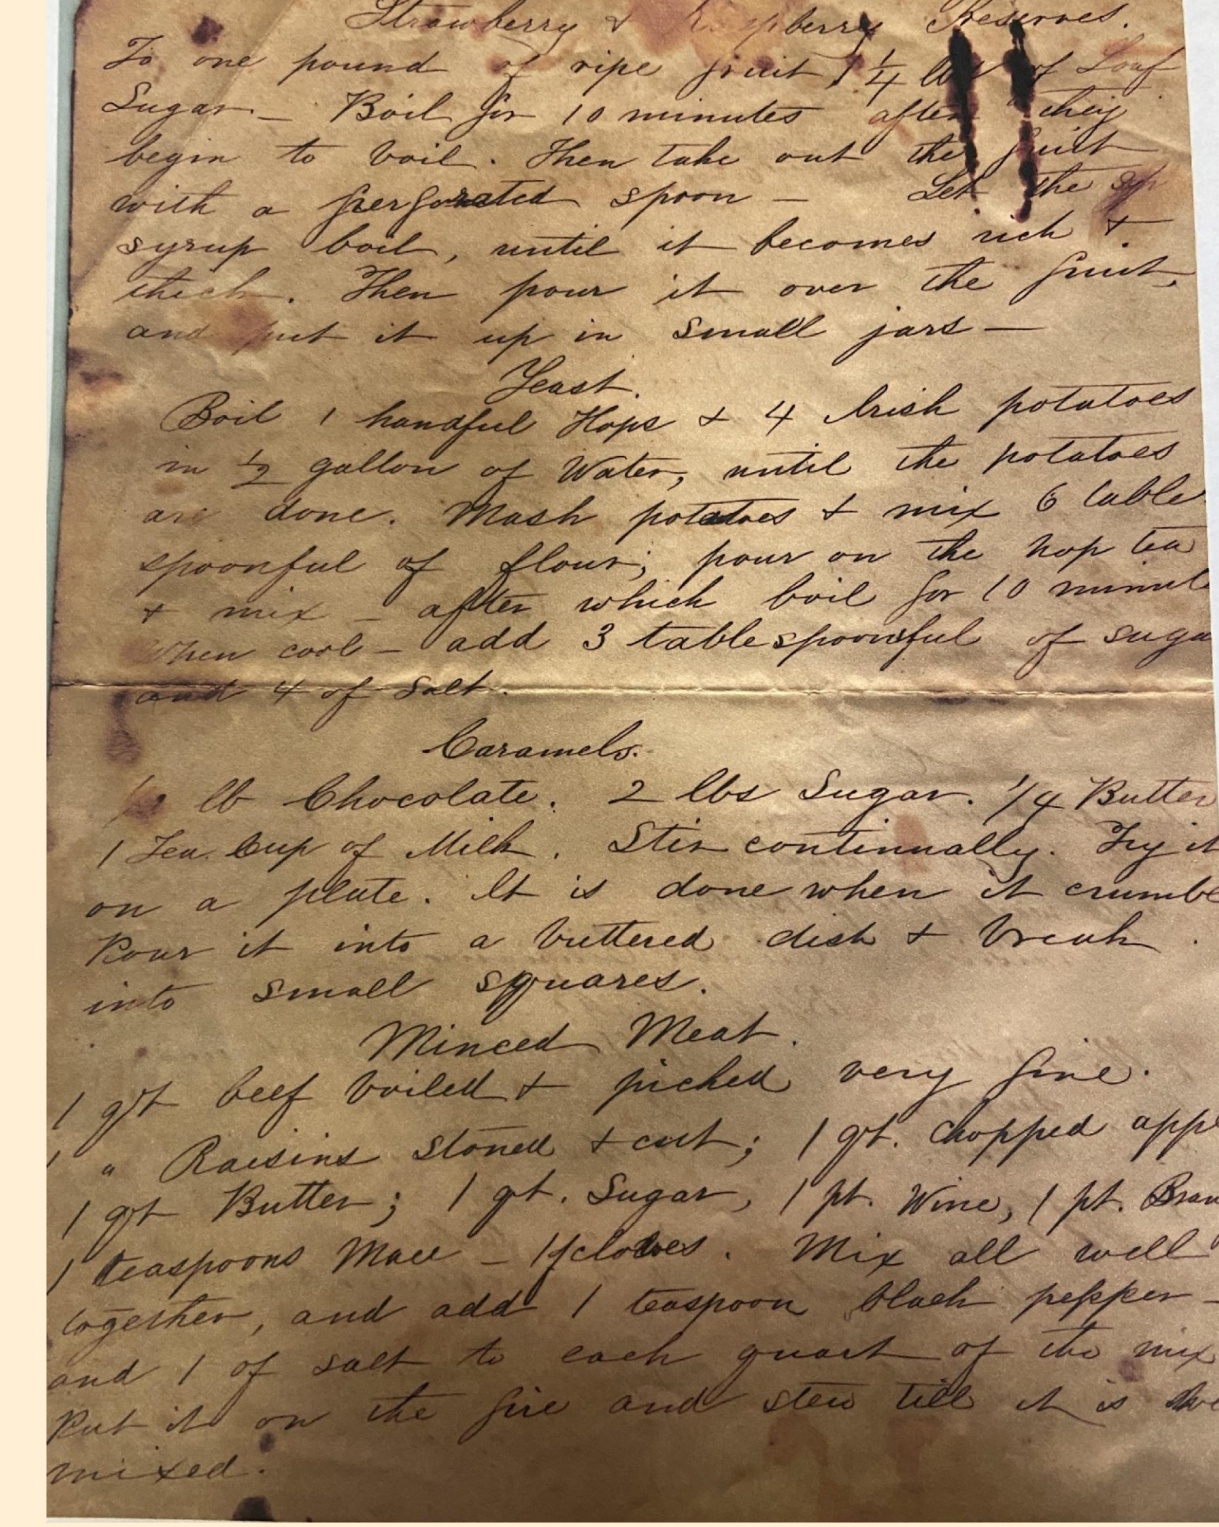 Strawberry & Raspberry Preserves.
To one pound of ripe fruit 1 1/4 lbs of Loaf
Sugar — Boil for 10 minutes after they
begin to boil. Then take out the fruit
with a perforated spoon — Let the
syrup boil, until it becomes rich &
thick. Then pour it over the fruit,
and put it up in small jars —
Yeast.
Boil 1 handful Hops & 4 Irish potatoes
in 1/2 gallon of Water, until the potatoes
are done. Mash potatoes & mix 6 table
spoonful of flour; pour on the hop tea
& mix — after which boil for 10 minut
When cool — add 3 tablespoonsful of suga
and 4 of Salt.
Caramels.
lb Chocolate. 2 lbs Sugar. 1/4 Butter
1 Tea Cup of Milk. Stir continually. Try it
on a plate. It is done when it crumbl
Pour it into a buttered dish & break
into small squares.
Minced Meat.
1 qt beef boiled & picked very fine.
1 " Raisins stoned & cut; 1 qt. chopped app
1 qt Butter; 1 qt. Sugar, 1 pt. Wine, 1 pt. Bran
1 teaspoons Mace — cloves. Mix all well
together, and add 1 teaspoon black pepper —
and 1 of salt to each quart of the mix
Put it on the fire and stew till it is
mixed.